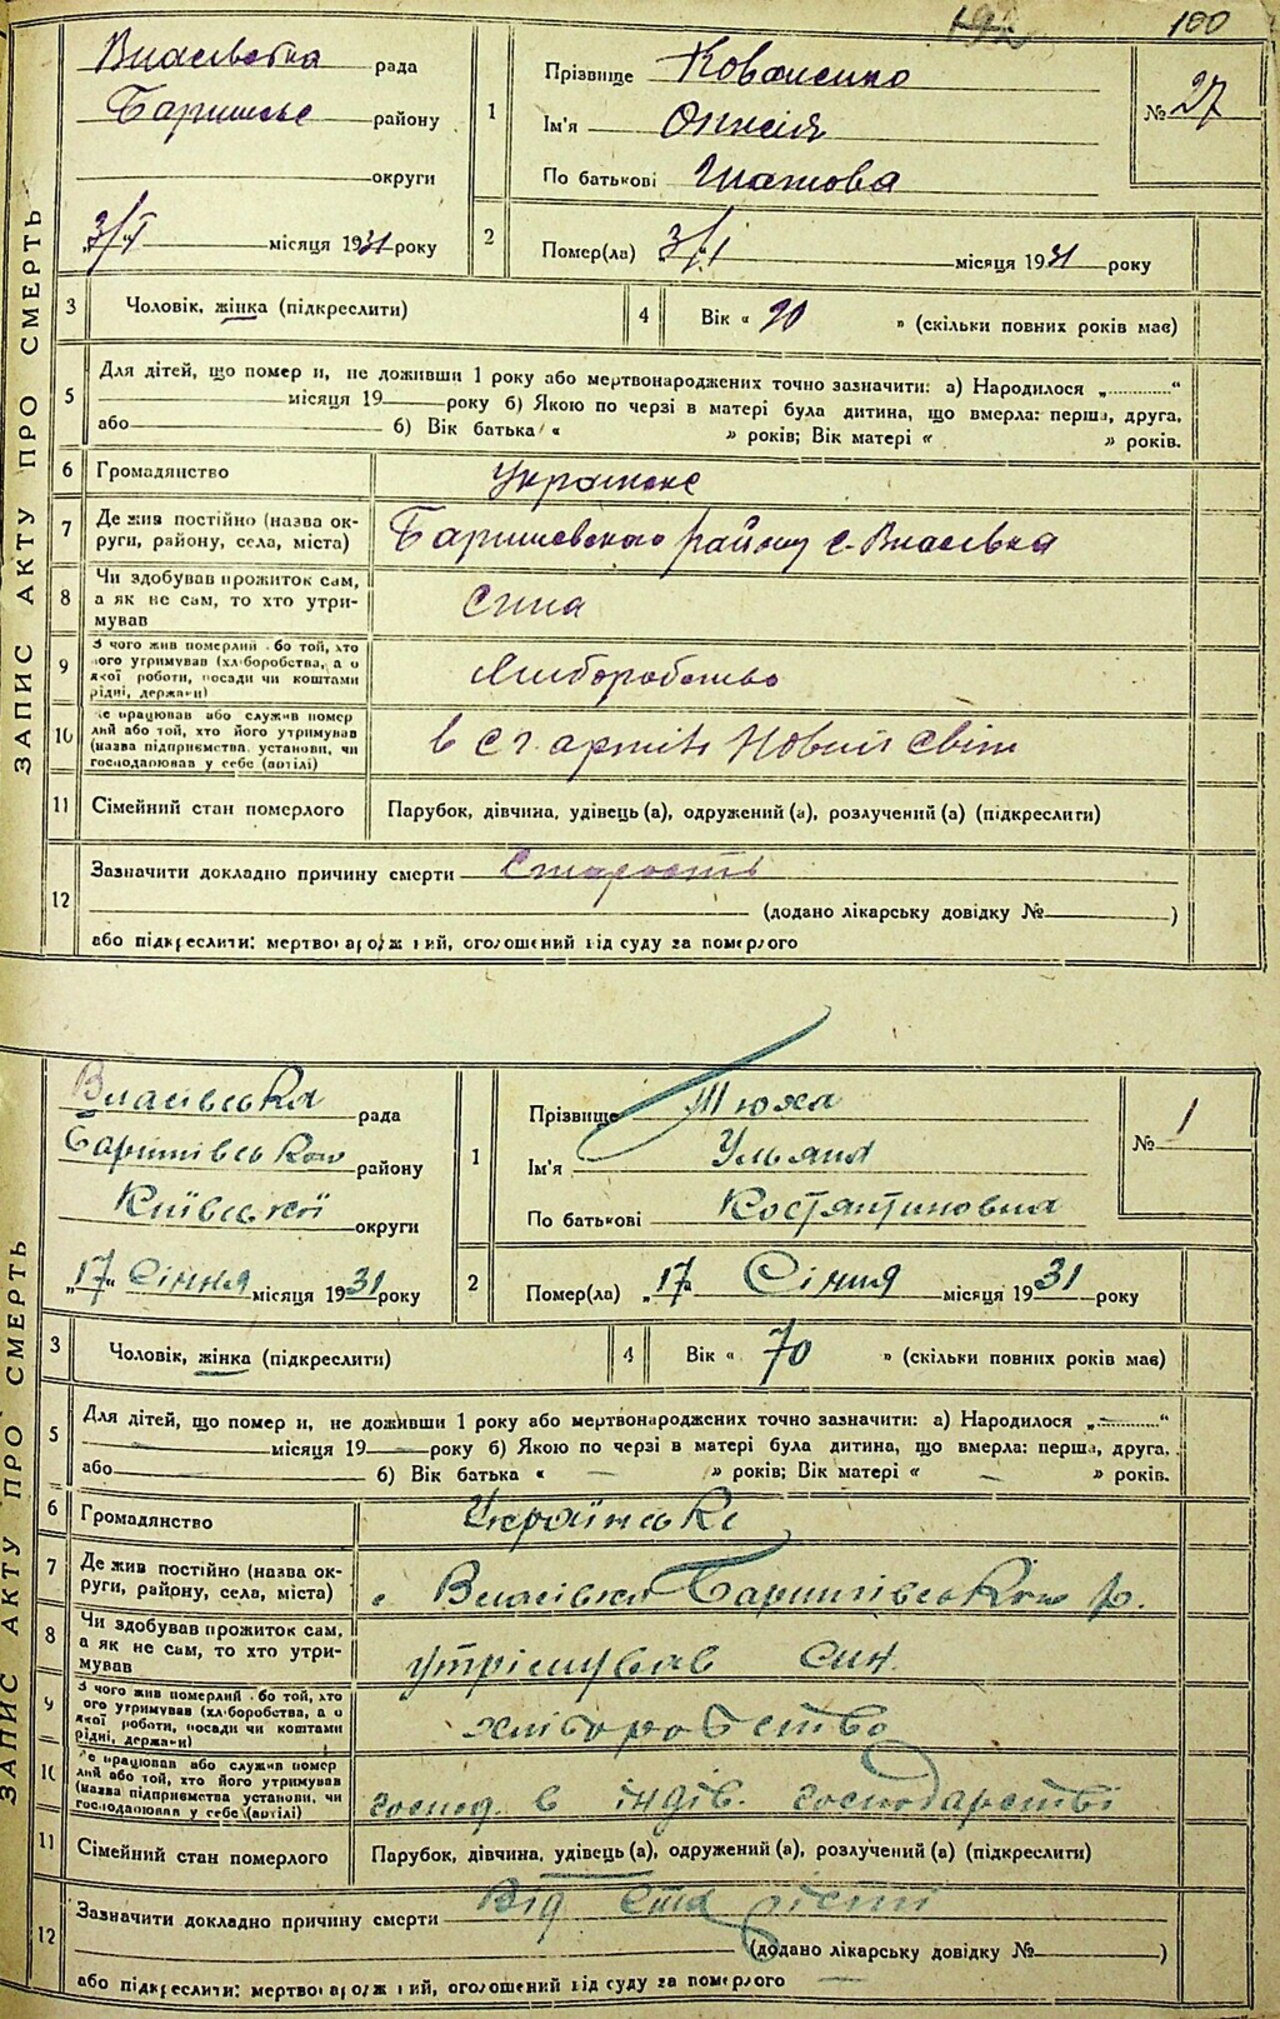 100
ЗАПИС АКТУ ПРО СМЕРТЬ
рада
району
округи
3/I місяця 1931 року
1
Прізвище Коваленко
Ім'я
По батькові
№ 27
2 Помер(ла) 3/I місяця 1931 року
3 Чоловік, жінка (підкреслити)
4 Вік « » (скільки повних років має)
5 Для дітей, що помер и, не доживши 1 року або мертвонароджених точно зазначити: а) Народилося „ “
місяця 19 року б) Якою по черзі в матері була дитина, що вмерла: перша, друга,
або б) Вік батька « » років; Вік матері « » років.
6 Громадянство
7 Де жив постійно (назва ок-
руги, району, села, міста)
району с. Власівка
8 Чи здобував прожиток сам,
а як не сам, то хто утри-
мував
9 З чого жив померлий бо той, хто
ого утримував (хліборобства, а о
якої роботи, посади чи коштами
рідні, держави)
Хліборобство
10 е працював або служив помер
лий або той, хто його утримував
(назва підприємства, установи, чи
господарював у себе (артілі)
в с г. артілі Новий світ
11 Сімейний стан померлого
Парубок, дівчина, удівець (а), одружений (а), розлучений (а) (підкреслити)
12 Зазначити докладно причину смерти Старость
(додано лікарську довідку № )
або підкреслити: мертвонароджений, оголошений від суду за померлого
ЗАПИС АКТУ ПРО СМЕРТЬ
Власівська рада
району
Київської округи
„17“ Січня місяця 1931 року
1
Прізвище Тюха
Ім'я Ульяна
По батькові Костянтиновна
№ 1
2 Помер(ла) „17“ Січня місяця 1931 року
3 Чоловік, жінка (підкреслити)
4 Вік « 70 » (скільки повних років має)
5 Для дітей, що помер и, не доживши 1 року або мертвонароджених точно зазначити: а) Народилося „ “
місяця 19 року б) Якою по черзі в матері була дитина, що вмерла: перша, друга,
або б) Вік батька « — » років; Вік матері « — » років.
6 Громадянство Українське
7 Де жив постійно (назва ок-
руги, району, села, міста)
с Власівка р.
8 Чи здобував прожиток сам,
а як не сам, то хто утри-
мував
утрімував син.
9 З чого жив померлий бо той, хто
ого утримував (хліборобства, а о
якої роботи, посади чи коштами
рідні, держави)
хліборобство
10 е працював або служив помер
лий або той, хто його утримував
(назва підприємства установи, чи
господарював у себе (артілі)
господ. в індів. господарстві
11 Сімейний стан померлого
Парубок, дівчина, удівець (а), одружений (а), розлучений (а) (підкреслити)
12 Зазначити докладно причину смерти Від старісті
(додано лікарську довідку № )
або підкреслити: мертвонароджений, оголошений від суду за померлого —